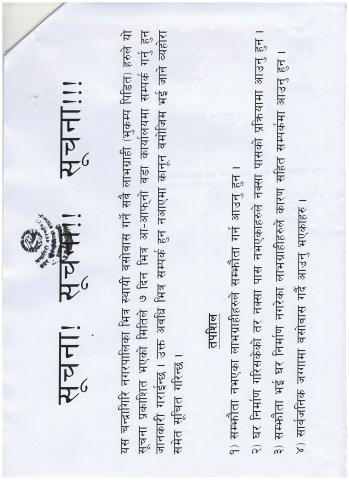 सूचना! सूचना! सूचना!!!
यस चन्द्रागिरि नगरपालिका भित्र स्थायी बसोबास गर्ने सबै लाभग्राही (भुकम्प पिडित) हरुले यो
सूचना प्रकाशित भएको मितिले ७ दिन भित्र आ-आफ्नो वडा कार्यालयमा सम्पर्क गर्नु हुन
जानकारी गराईन्छ । उक्त अवधि भित्र सम्पर्क हुन नआएमा कानून बमोजिम भई जाने व्यहोरा
समेत सूचित गरिन्छ ।
तपशिल
१) सम्झौता नभएका लाभग्राहीहरुले सम्झौता गर्न आउनु हुन ।
२) घर निर्माण गरिसकेको तर नक्सा पास नभएकाहरुले नक्सा पासको प्रक्रियामा आउनु हुन ।
३) सम्झौता भई घर निर्माण नगरेका लाभग्राहीहरुले कारण सहित सम्पर्कमा आउनु हुन ।
४) सार्वजनिक जग्गामा बसोबास गर्दै आउनु भएकाहरु ।